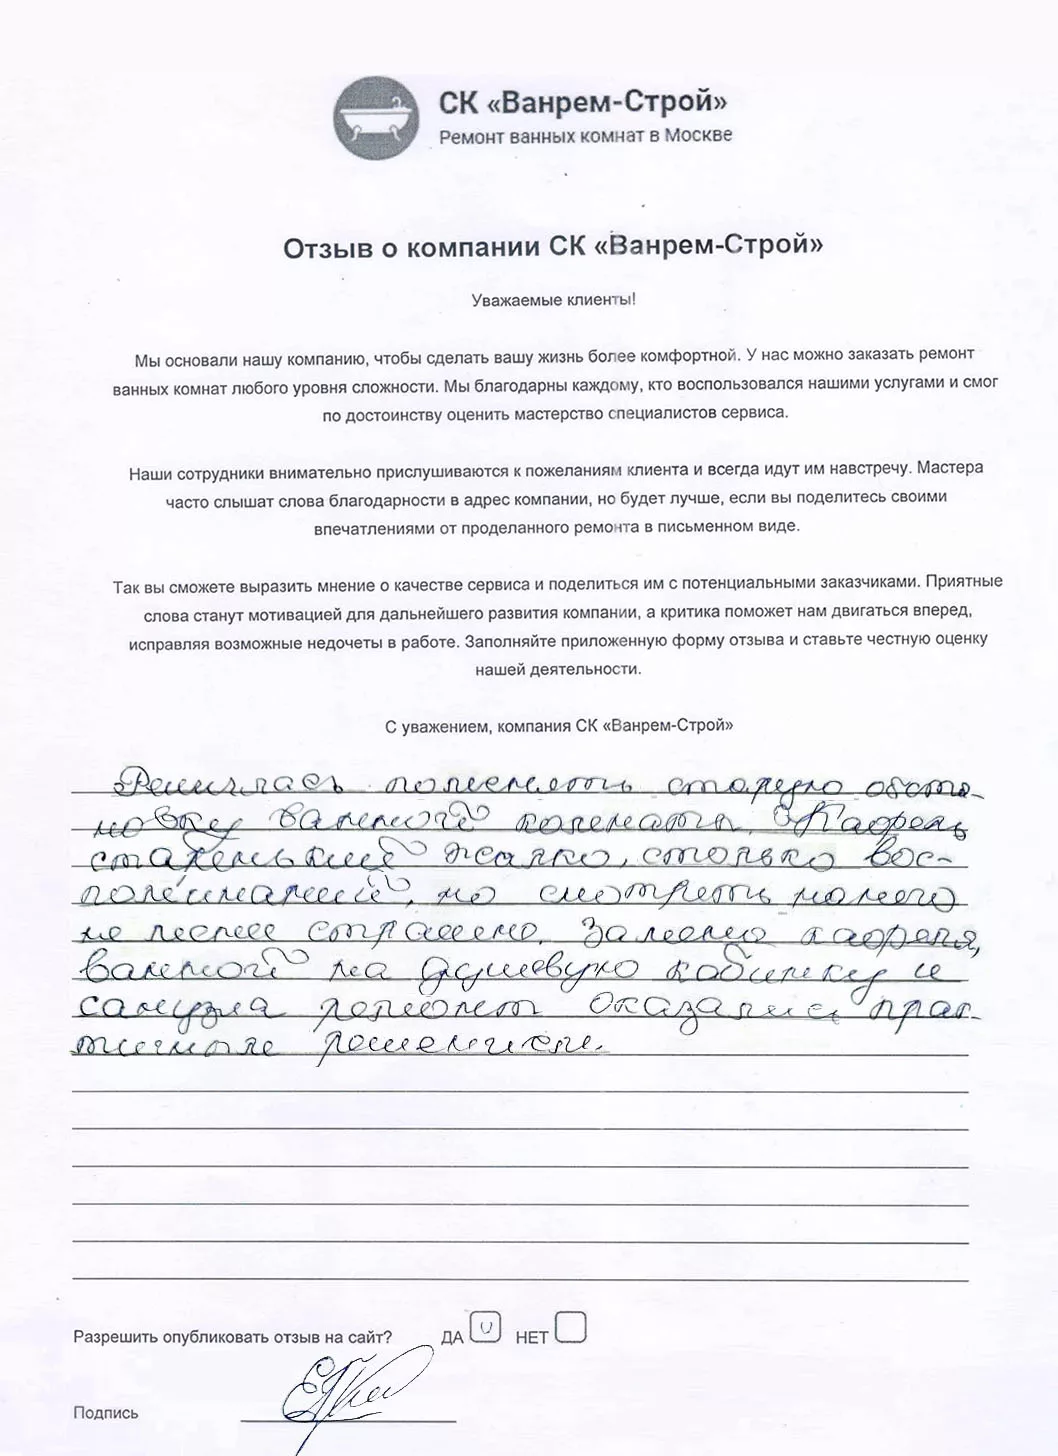 СК «Ванрем-Строй»
Ремонт ванных комнат в Москве
Отзыв о компании СК «Ванрем-Строй»
Уважаемые клиенты!
Мы основали нашу компанию, чтобы сделать вашу жизнь более комфортной. У нас можно заказать ремонт
ванных комнат любого уровня сложности. Мы благодарны каждому, кто воспользовался нашими услугами и смог
по достоинству оценить мастерство специалистов сервиса.
Наши сотрудники внимательно прислушиваются к пожеланиям клиента и всегда идут им навстречу. Мастера
часто слышат слова благодарности в адрес компании, но будет лучше, если вы поделитесь своими
впечатлениями от проделанного ремонта в письменном виде.
Так вы сможете выразить мнение о качестве сервиса и поделиться им с потенциальными заказчиками. Приятные
слова станут мотивацией для дальнейшего развития компании, а критика поможет нам двигаться вперед,
исправляя возможные недочеты в работе. Заполняйте приложенную форму отзыва и ставьте честную оценку
нашей деятельности.
С уважением, компания СК «Ванрем-Строй»
Решилась поменять старую обста-
новку ванной комнаты. Кафель
стареньким жалко, столько вос-
поминаний, но смотреть на него
не менее страшно. Замена кафеля,
ванной на душевую кабинку и
санузла ремонт оказались прак-
тичным решением.
Разрешить опубликовать отзыв на сайт? ДА НЕТ
Подпись